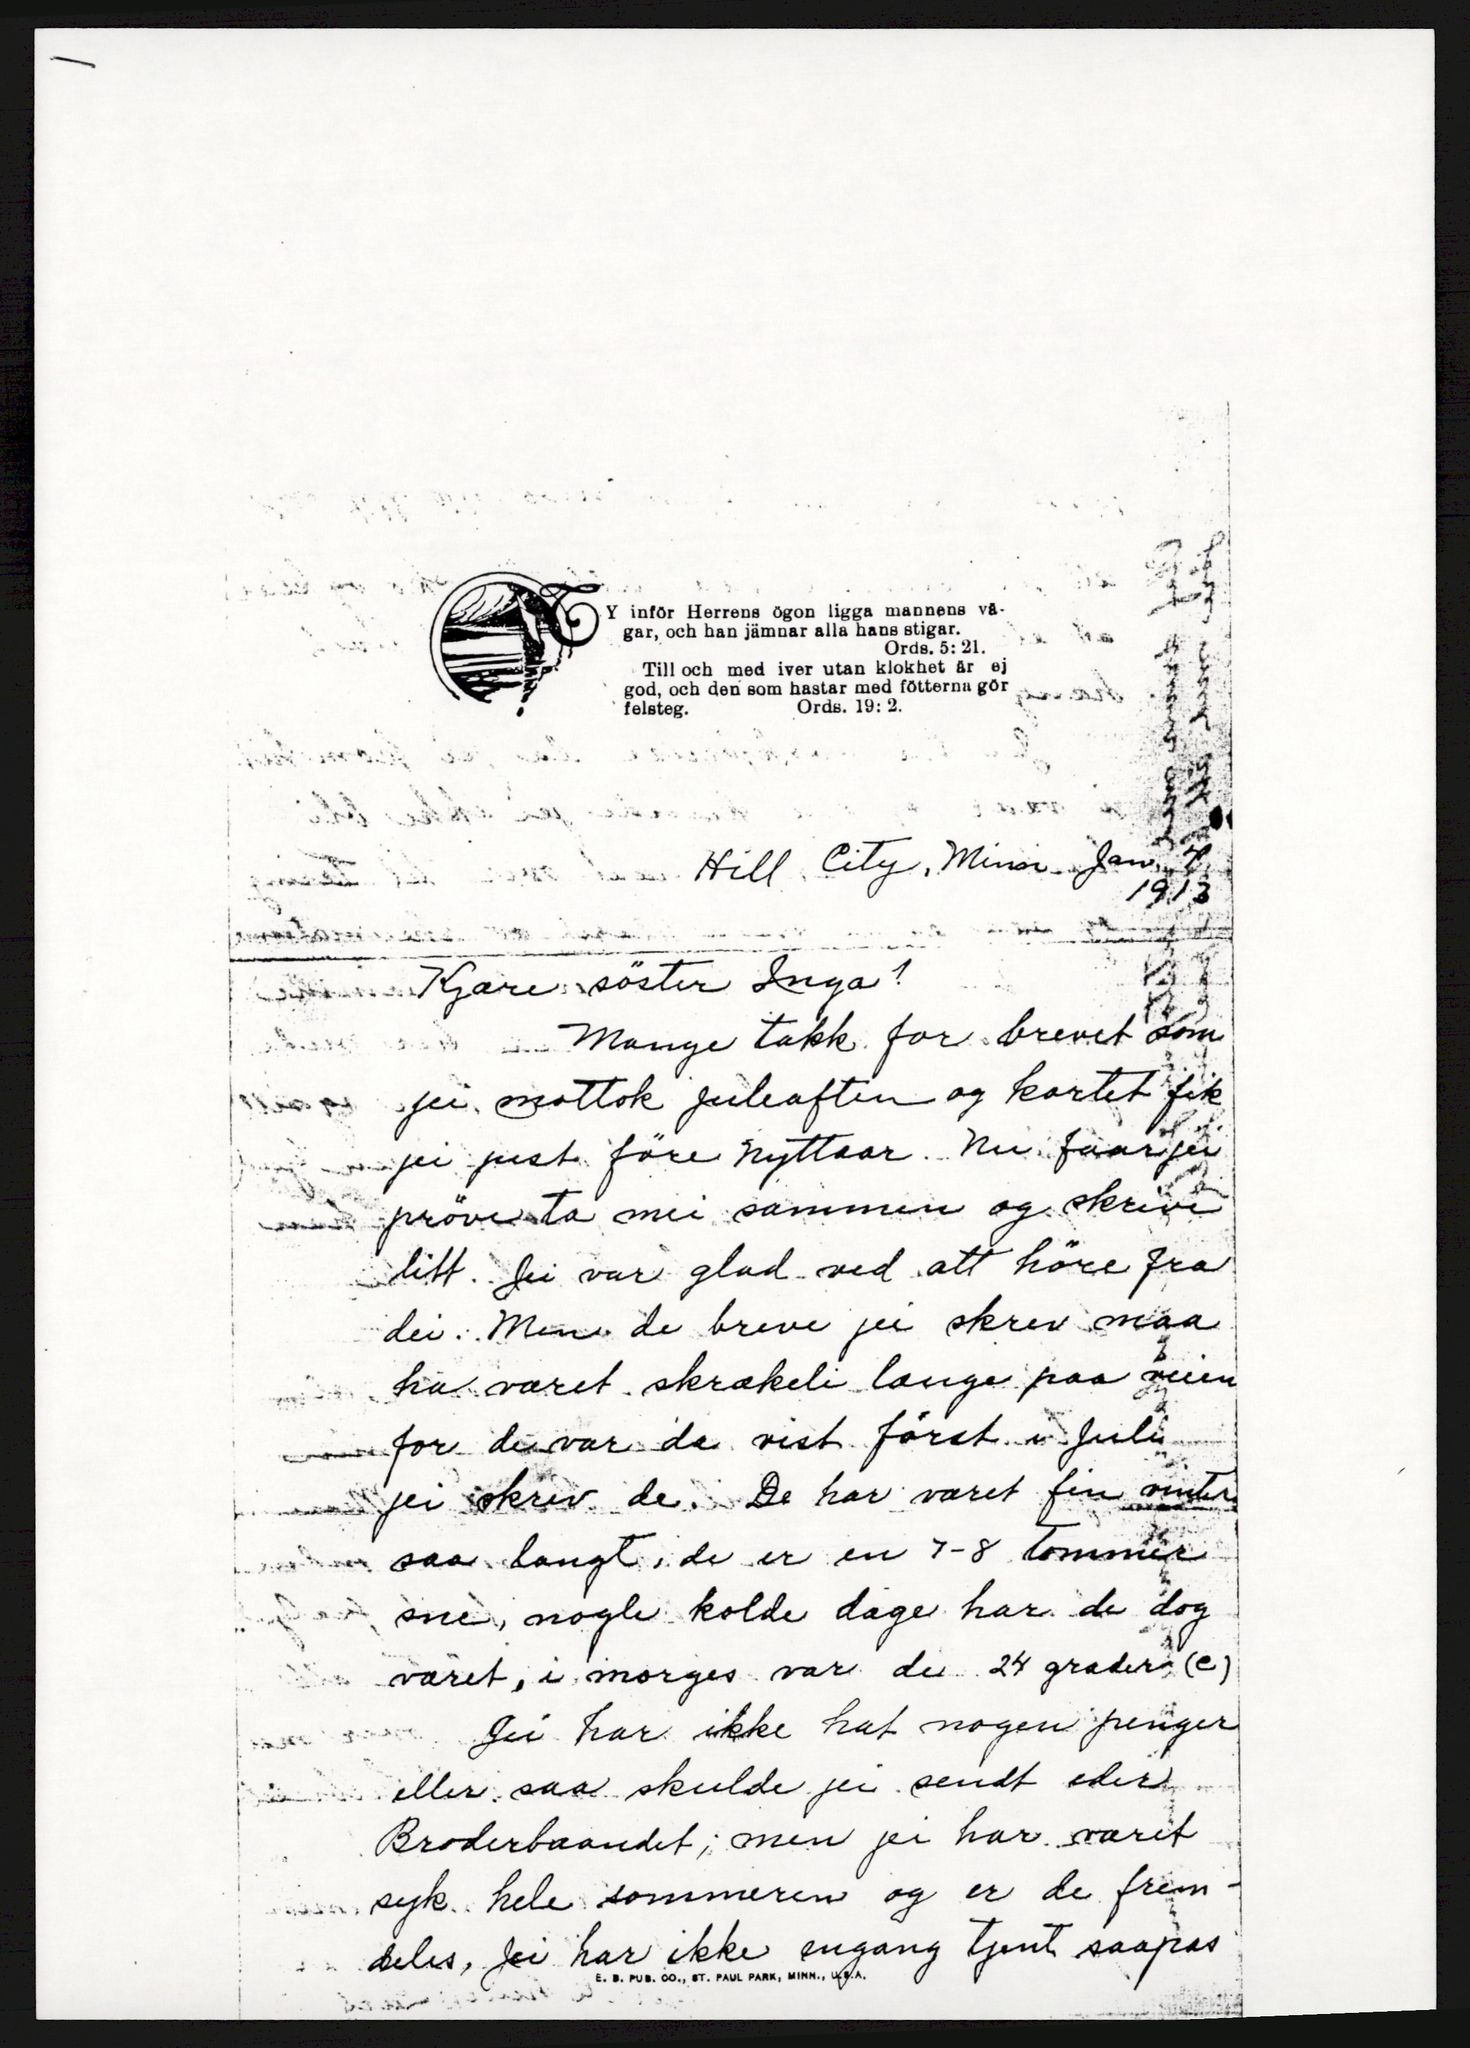 TY inför Herrens ögon ligga mannens vä-
gar, och han jämnar alla hans stigar.
Ords. 5: 21.
Till och med iver utan klokhet är ej
god, och den som hastar med fötterna gör
felsteg. Ords. 19: 2.
Hill City, Minn. Jan. 7,
1913
Kjære söster Inga!
Mange takk for brevet som
jei mottok juleaften og kortet fik
jei just före Nyttaar. Nu faar jei
pröve ta mei sammen og skrive
litt. Jei var glad ved att höre fra
dei. Men de breve jei skrev maa
ha været skrækeli længe paa veien
for de var da vist först i Juli
jei skrev de. De har været fin vinter
saa langt, de er en 7-8 tommer
sne, nogle kolde dage har de dog
været, i morges var de 24 grader (C)
Jei har ikke hat nogen penger
eller saa skulde jei sendt eder
Broderbaandet; men jei har været
syk hele sommeren og er de frem-
deles, Jei har ikke engang tjent saapas
E. B. PUB. CO., ST. PAUL PARK, MINN., U.S.A.